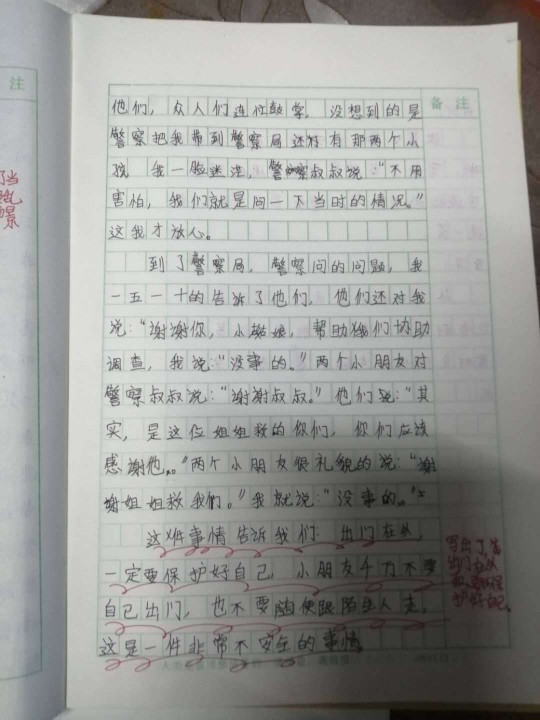 备 注
他们，众人们连忙鼓掌，没想到的是
警察把我带到警察局还有那两个小
孩，我一脸迷茫，警察叔叔说："不用
害怕，我们就是问一下当时的情况。"
这我才放心。
到了警察局，警察问的问题，我
一五一十的告诉了他们，他们还对我
说："谢谢你，小姑娘，帮助我们协助
调查，我说："没事的。"两个小朋友对
警察叔叔说："谢谢叔叔。"他们说："其
实，是这位姐姐救的你们，你们应该
感谢他。"两个小朋友很礼貌的说："谢
谢姐姐救我们。"我就说："没事的。"
这件事情告诉我们：出门在外，
一定要保护好自己，小朋友千万不要
自己出门，也不要随便跟陌生人走，
这是一件非常不安全的事情
写出了
出门在外
要保
护好自己
注